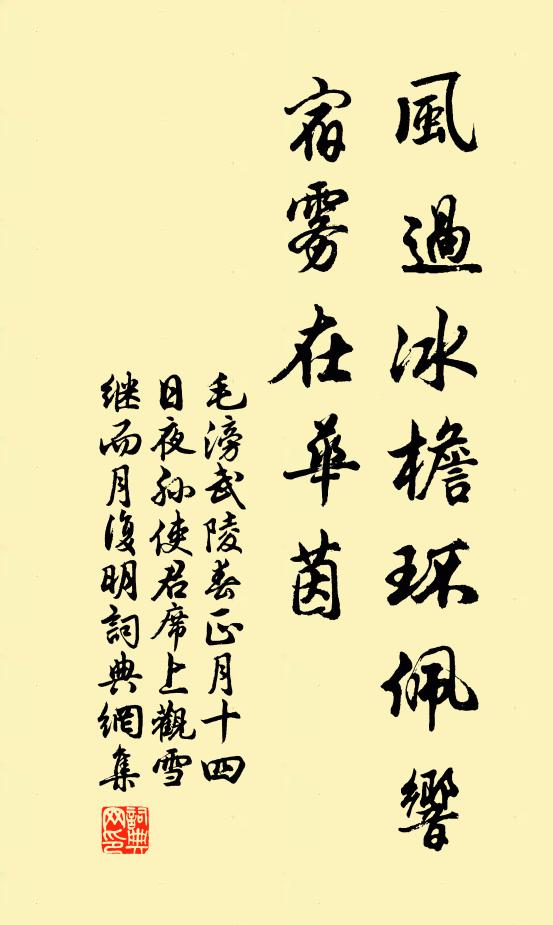 風過冰檐环佩響
宿雾在華茵
毛滂武陵春正月十四
日夜孙使君席上觀雪
继而月復明詞典網集
詞典
网印